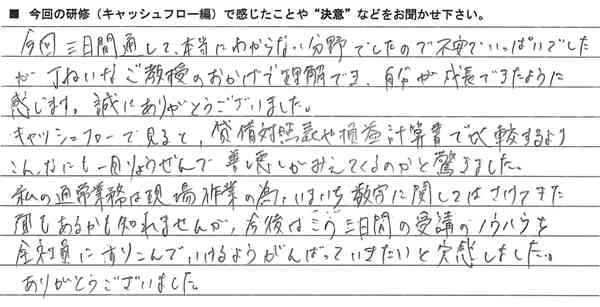 ■ 今回の研修（キャッシュフロー編）で感じたことや“決意”などをお聞かせ下さい。
今回三日間通して、本当にわからない分野でしたので不安でいっぱいでした
が丁ねいなご教授のおかげで理解でき、自分が成長できたように
感じます。誠にありがとうございました。
キャッシュフローで見ると、貸借対照表や損益計算書で比較するより
こんなにも一目りょうぜんで善し悪しがみえてくるのかと驚きました。
私の通常業務は現場作業の為、いまいち数字に関してはさけてきた
面もあるかも知れませんが、今後はこの三日間の受講のノウハウを
全社員にすりこんでいけるようがんばっていきたいと実感しました。
ありがとうございました。